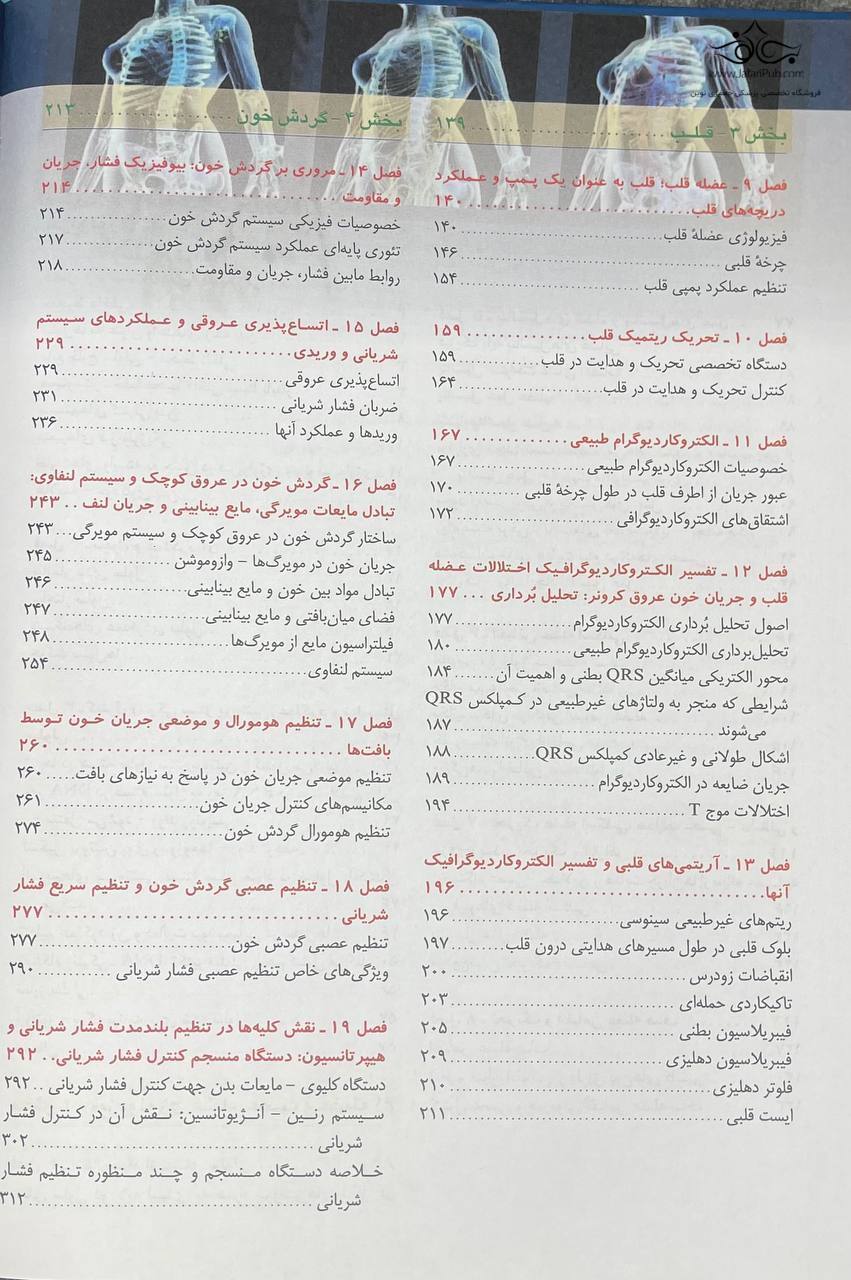 www.JafariPub.com
فروشگاه تخصصی پزشکی جعفری نوین
بخش ۳ - قلب ..... ۱۳۹
فصل ۹ ـ عضله قلب؛ قلب به عنوان یک پمپ و عملکرد
دریچه‌های قلب ..... ۱۴۰
فیزیولوژی عضلهٔ قلب ..... ۱۴۰
چرخهٔ قلبی ..... ۱۴۶
تنظیم عملکرد پمپی قلب ..... ۱۵۴
فصل ۱۰ ـ تحریک ریتمیک قلب ..... ۱۵۹
دستگاه تخصصی تحریک و هدایت در قلب ..... ۱۵۹
کنترل تحریک و هدایت در قلب ..... ۱۶۴
فصل ۱۱ ـ الکتروکاردیوگرام طبیعی ..... ۱۶۷
خصوصیات الکتروکاردیوگرام طبیعی ..... ۱۶۷
عبور جریان از اطرف قلب در طول چرخهٔ قلبی ..... ۱۷۰
اشتقاق‌های الکتروکاردیوگرافی ..... ۱۷۲
فصل ۱۲ ـ تفسیر الکتروکاردیوگرافیک اختلالات عضله
قلب و جریان خون عروق کرونر: تحلیل بُرداری ... ۱۷۷
اصول تحلیل بُرداری الکتروکاردیوگرام ..... ۱۷۷
تحلیل‌برداری الکتروکاردیوگرام طبیعی ..... ۱۸۰
محور الکتریکی میانگین QRS بطنی و اهمیت آن ..... ۱۸۴
شرایطی که منجر به ولتاژهای غیرطبیعی در کمپلکس QRS
می‌شوند ..... ۱۸۷
اشکال طولانی و غیرعادی کمپلکس QRS ..... ۱۸۸
جریان ضایعه در الکتروکاردیوگرام ..... ۱۸۹
اختلالات موج T ..... ۱۹۴
فصل ۱۳ ـ آریتمی‌های قلبی و تفسیر الکتروکاردیوگرافیک
آنها ..... ۱۹۶
ریتم‌های غیرطبیعی سینوسی ..... ۱۹۶
بلوک قلبی در طول مسیرهای هدایتی درون قلب ..... ۱۹۷
انقباضات زودرس ..... ۲۰۰
تاکیکاردی حمله‌ای ..... ۲۰۳
فیبریلاسیون بطنی ..... ۲۰۵
فیبریلاسیون دهلیزی ..... ۲۰۹
فلوتر دهلیزی ..... ۲۱۰
ایست قلبی ..... ۲۱۱
بخش ۴ - گردش خون ..... ۲۱۳
فصل ۱۴ ـ مروری بر گردش خون: بیوفیزیک فشار، جریان
و مقاومت ..... ۲۱۴
خصوصیات فیزیکی سیستم گردش خون ..... ۲۱۴
تئوری پایه‌ای عملکرد سیستم گردش خون ..... ۲۱۷
روابط مابین فشار، جریان و مقاومت ..... ۲۱۸
فصل ۱۵ ـ اتساع‌پذیری عروقی و عملکردهای سیستم
شریانی و وریدی ..... ۲۲۹
اتساع‌پذیری عروقی ..... ۲۲۹
ضربان فشار شریانی ..... ۲۳۱
وریدها و عملکرد آنها ..... ۲۳۶
فصل ۱۶ ـ گردش خون در عروق کوچک و سیستم لنفاوی:
تبادل مایعات مویرگی، مایع بینابینی و جریان لنف .. ۲۴۳
ساختار گردش خون در عروق کوچک و سیستم مویرگی ... ۲۴۳
جریان خون در مویرگ‌ها - وازوموشن ..... ۲۴۵
تبادل مواد بین خون و مایع بینابینی ..... ۲۴۶
فضای میان‌بافتی و مایع بینابینی ..... ۲۴۷
فیلتراسیون مایع از مویرگ‌ها ..... ۲۴۸
سیستم لنفاوی ..... ۲۵۴
فصل ۱۷ ـ تنظیم هومورال و موضعی جریان خون توسط
بافت‌ها ..... ۲۶۰
تنظیم موضعی جریان خون در پاسخ به نیازهای بافت ..... ۲۶۰
مکانیسم‌های کنترل جریان خون ..... ۲۶۱
تنظیم هومورال گردش خون ..... ۲۷۴
فصل ۱۸ ـ تنظیم عصبی گردش خون و تنظیم سریع فشار
شریانی ..... ۲۷۷
تنظیم عصبی گردش خون ..... ۲۷۷
ویژگی‌های خاص تنظیم عصبی فشار شریانی ..... ۲۹۰
فصل ۱۹ ـ نقش کلیه‌ها در تنظیم بلندمدت فشار شریانی و
هیپرتانسیون: دستگاه منسجم کنترل فشار شریانی .. ۲۹۲
دستگاه کلیوی - مایعات بدن جهت کنترل فشار شریانی .. ۲۹۲
سیستم رنین - آنژیوتانسین: نقش آن در کنترل فشار
شریانی ..... ۳۰۲
خلاصه دستگاه منسجم و چند منظوره تنظیم فشار
شریانی ..... ۳۱۲